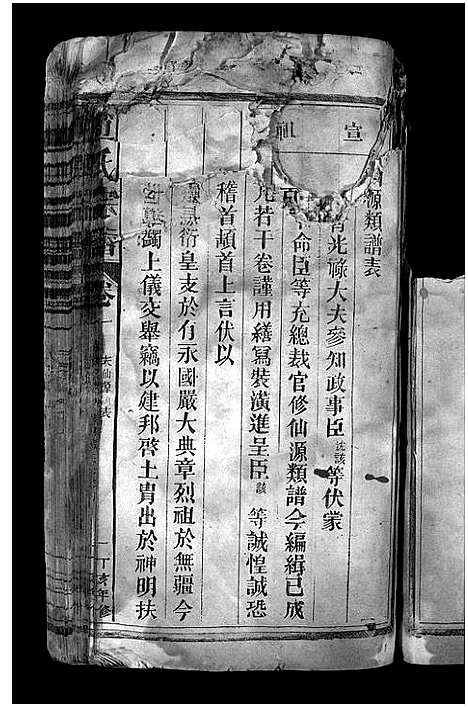 宣祖
源類譜表
光祿大夫參知政事臣沈該等伏蒙
命臣等充總裁官修仙源類譜今編緝已成
凡若干卷謹用繕寫裝潢進呈臣該等誠惶誠恐
稽首頓首上言伏以
蒸衍皇支於有永國嚴大典章烈祖於無疆今
蠲上儀交舉竊以建邦啓土胄出於神明扶
氏宗譜 卷一
丁亥年修